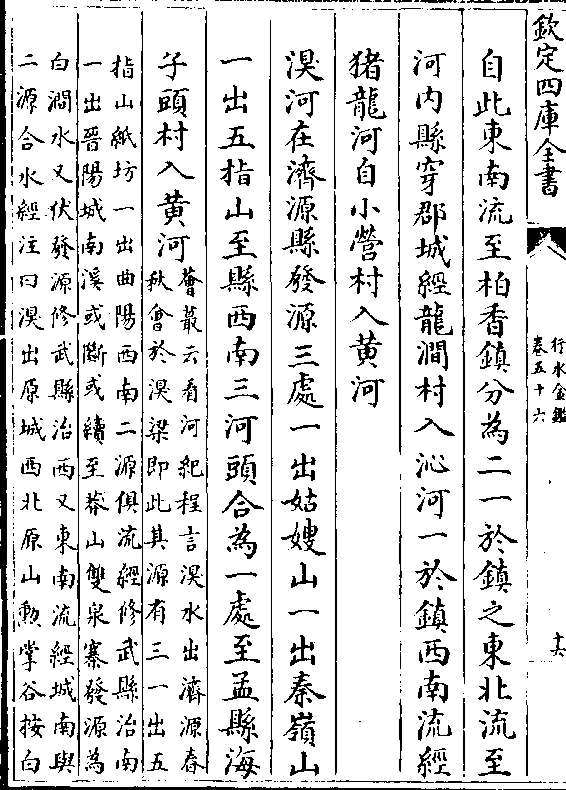 欽定四庫全書
行水金鑑
卷五十六
十六
自此東南流至柏香鎮分為二一於鎮之東北流至
河内縣穿郡城經龍澗村入沁河一於鎮西南流經
猪龍河自小營村入黄河
湨河在濟源縣發源三處一出姑嫂山一出秦嶺山
一出五指山至縣西南三河頭合為一處至孟縣海
子頭村入黄河
薈蕞云看河紀程言湨水出濟源春
秋會於湨梁即此其源有三一出五
指山紙坊一出曲陽西南二源俱流經修武縣治南
一出晉陽城南溪或斷或續至莽山雙泉寨發源為
白澗水又伏發源修武縣治西又東南流經城南與
二源合水經注曰湨出原城西北原山勲掌谷按白